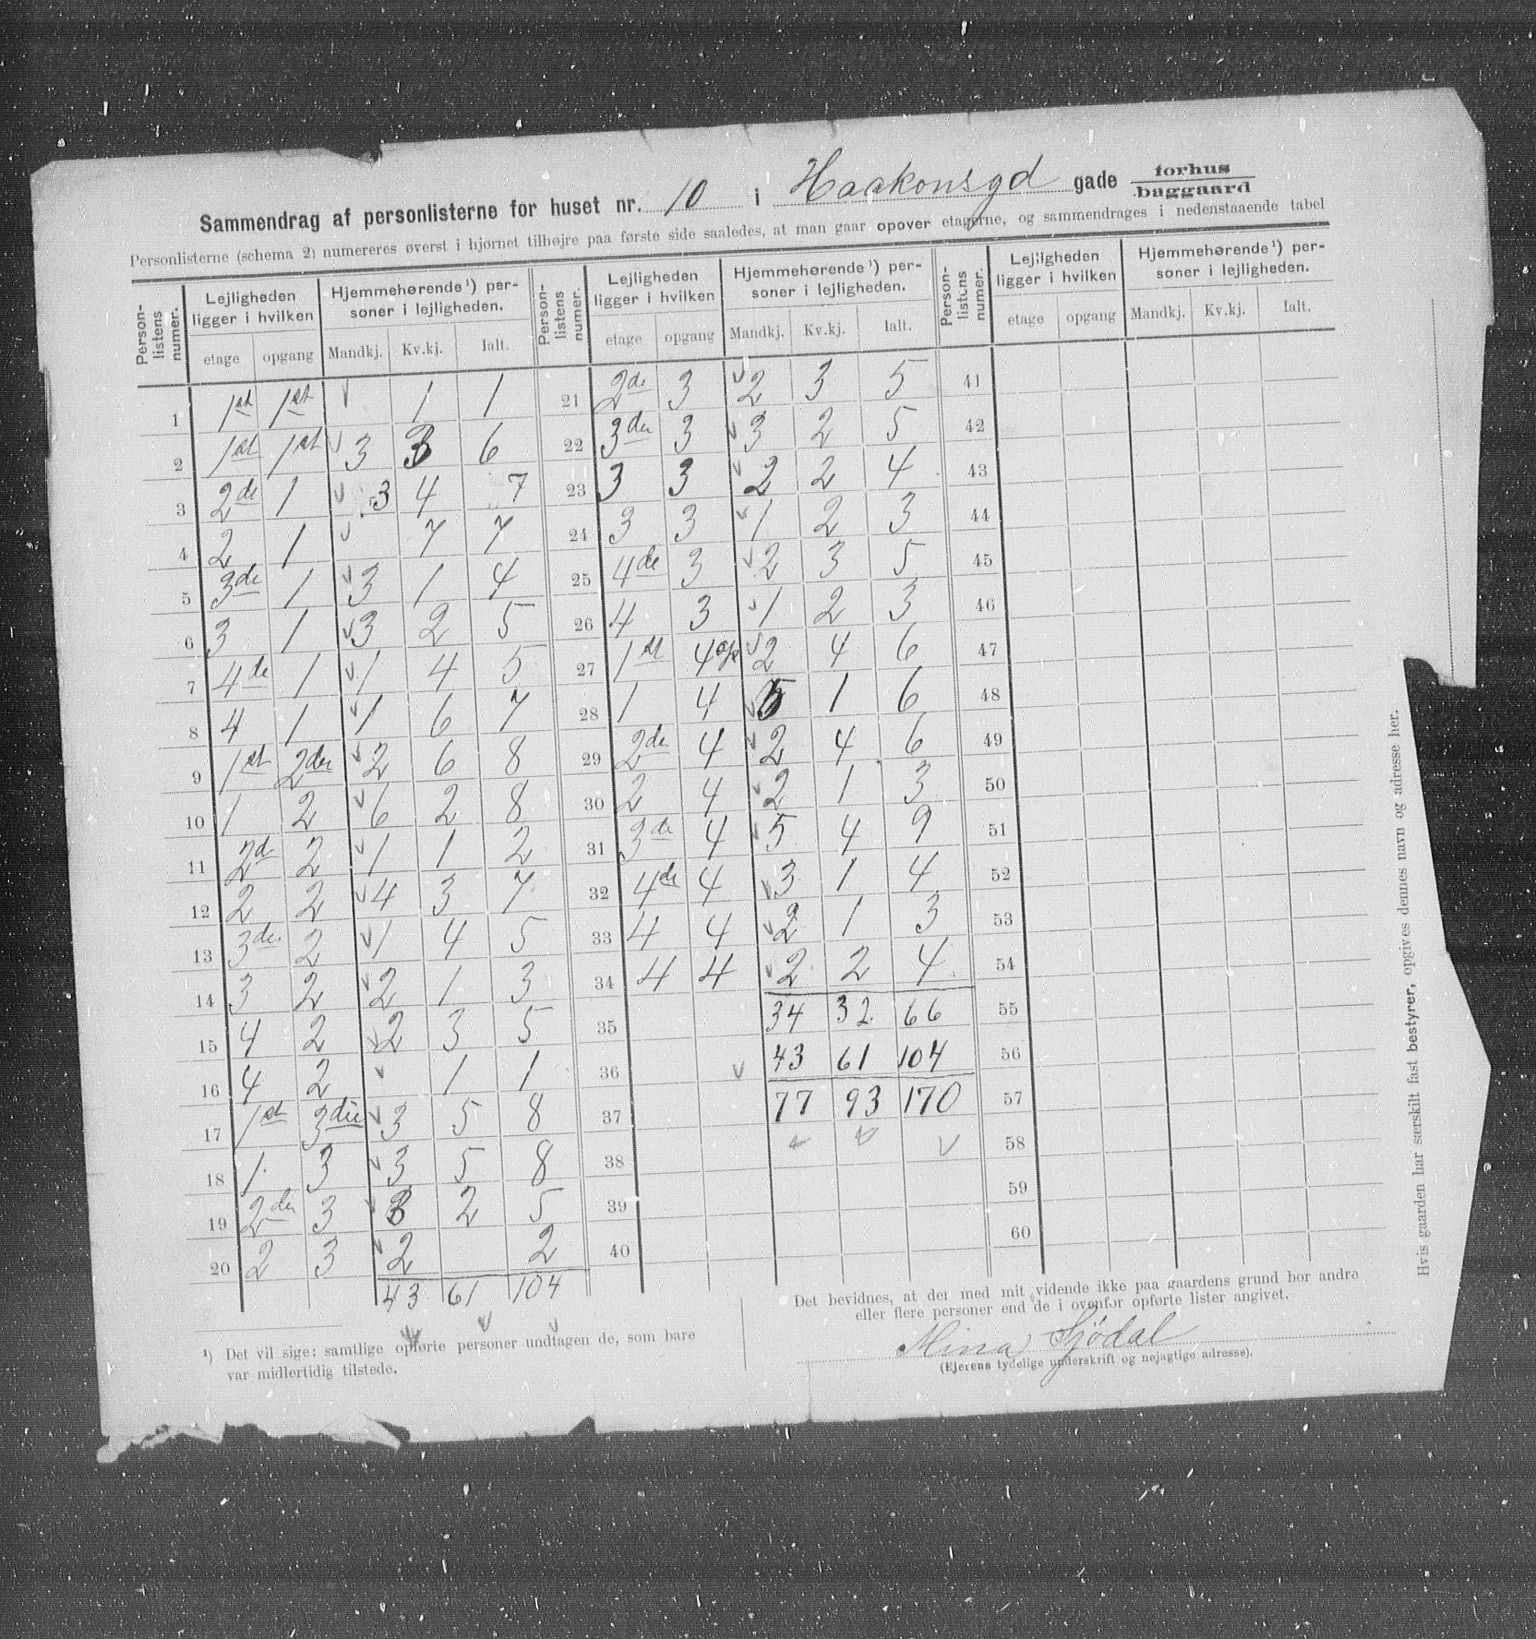 Sammendrag af personlisterne for huset nr. 10 i Haakonsgd gade forhus
baggaard
Personlisterne (schema 2) numereres øverst i hjørnet tilhøjre paa første side saaledes, at man gaar opover etagerne, og sammendrages i nedenstaaende tabel
Person-listens numer. Lejligheden ligger i hvilken Hjemmehørende¹) personer i lejligheden. Person-listens numer. Lejligheden ligger i hvilken Hjemmehørende¹) personer i lejligheden. Person-listens numer. Lejligheden ligger i hvilken Hjemmehørende¹) personer i lejligheden.
etage opgang Mandkj. Kv.kj. Ialt. etage opgang Mandkj. Kv.kj. Ialt. etage opgang Mandkj. Kv.kj. Ialt.
1 1st 1st 1 1 21 2de 3 2 3 5 41
2 1st 1st 3 3 6 22 3de 3 3 2 5 42
3 2de 1 3 4 7 23 3 3 2 2 4 43
4 2 1 7 7 24 3 3 1 2 3 44
5 3de 1 3 1 4 25 4de 3 2 3 5 45
6 3 1 3 2 5 26 4 3 1 2 3 46
7 4de 1 1 4 5 27 1st 4op 2 4 6 47
8 4 1 1 6 7 28 1 4 5 1 6 48
9 1st 2den 2 6 8 29 2de 4 2 4 6 49
10 1 2 6 2 8 30 2 4 2 1 3 50
11 2d 2 1 1 2 31 3de 4 5 4 9 51
12 2 2 4 3 7 32 4de 4 3 1 4 52
13 3de 2 1 4 5 33 4 4 2 1 3 53
14 3 2 2 1 3 34 4 4 2 2 4 54
15 4 2 2 3 5 35 34 32 66 55
16 4 2 1 1 36 43 61 104 56
17 1st 3die 3 5 8 37 77 93 170 57
18 1 3 3 5 8 38 58
19 2den 3 3 2 5 39 59
20 2 3 2 2 40 60
43 61 104
¹) Det vil sige: samtlige opførte personer undtagen de, som bare
var midlertidig tilstede.
Det bevidnes, at der med mit vidende ikke paa gaardens grund bor andre
eller flere personer end de i ovenfor opførte lister angivet.
Mina Sjödal
(Ejerens tydelige underskrift og nøjagtige adresse).
Hvis gaarden har særskilt fast bestyrer, opgives dennes navn og adresse her.